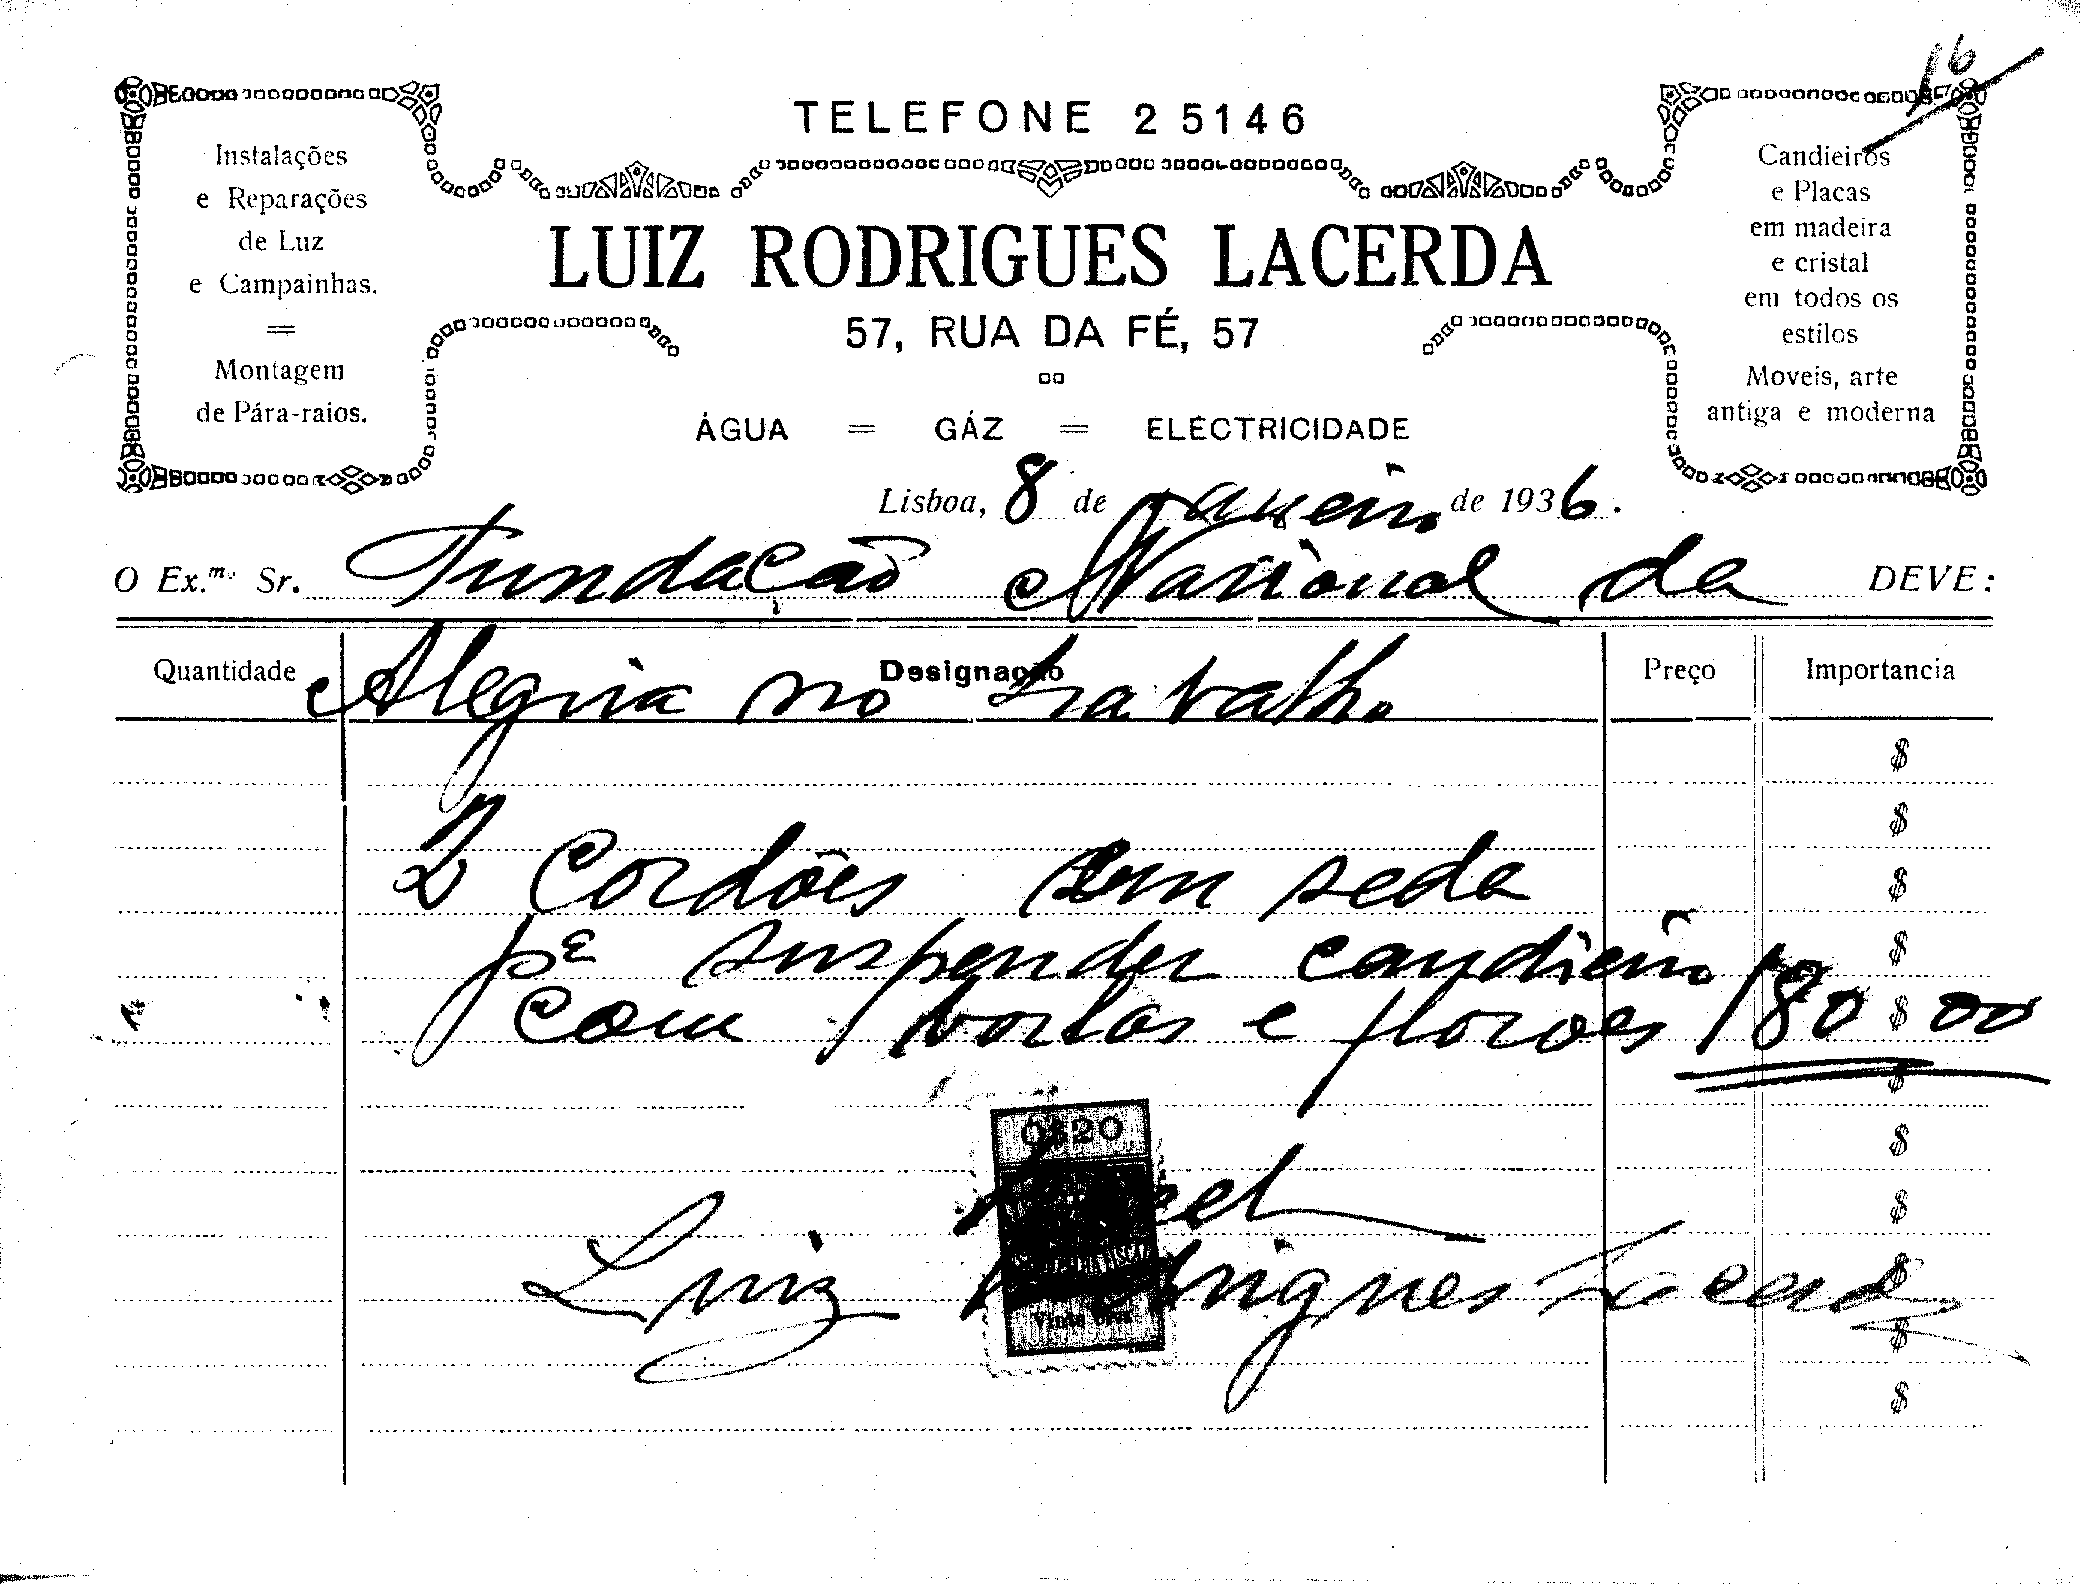 16
TELEFONE 2 5146
Instalações
e Reparações
de Luz
e Campainhas.
=
Montagem
de Pára-raios.
LUIZ RODRIGUES LACERDA
57, RUA DA FÉ, 57
ÁGUA = GÁZ = ELÉCTRICIDADE
Candieiros
e Placas
em madeira
e cristal
em todos os
estilos
Moveis, arte
antiga e moderna
Lisboa, 8 de Janeiro de 1936.
O Ex.mo Sr. Fundação Nacional da DEVE:
Alegria no trabalho
Quantidade Designação Preço Importancia
$
$
2 Cordões em seda $
pª suspender candieiro $
com borlas e florões 180$00
$
0$20
$
$
Luiz Rodrigues Lacerda $
$
$